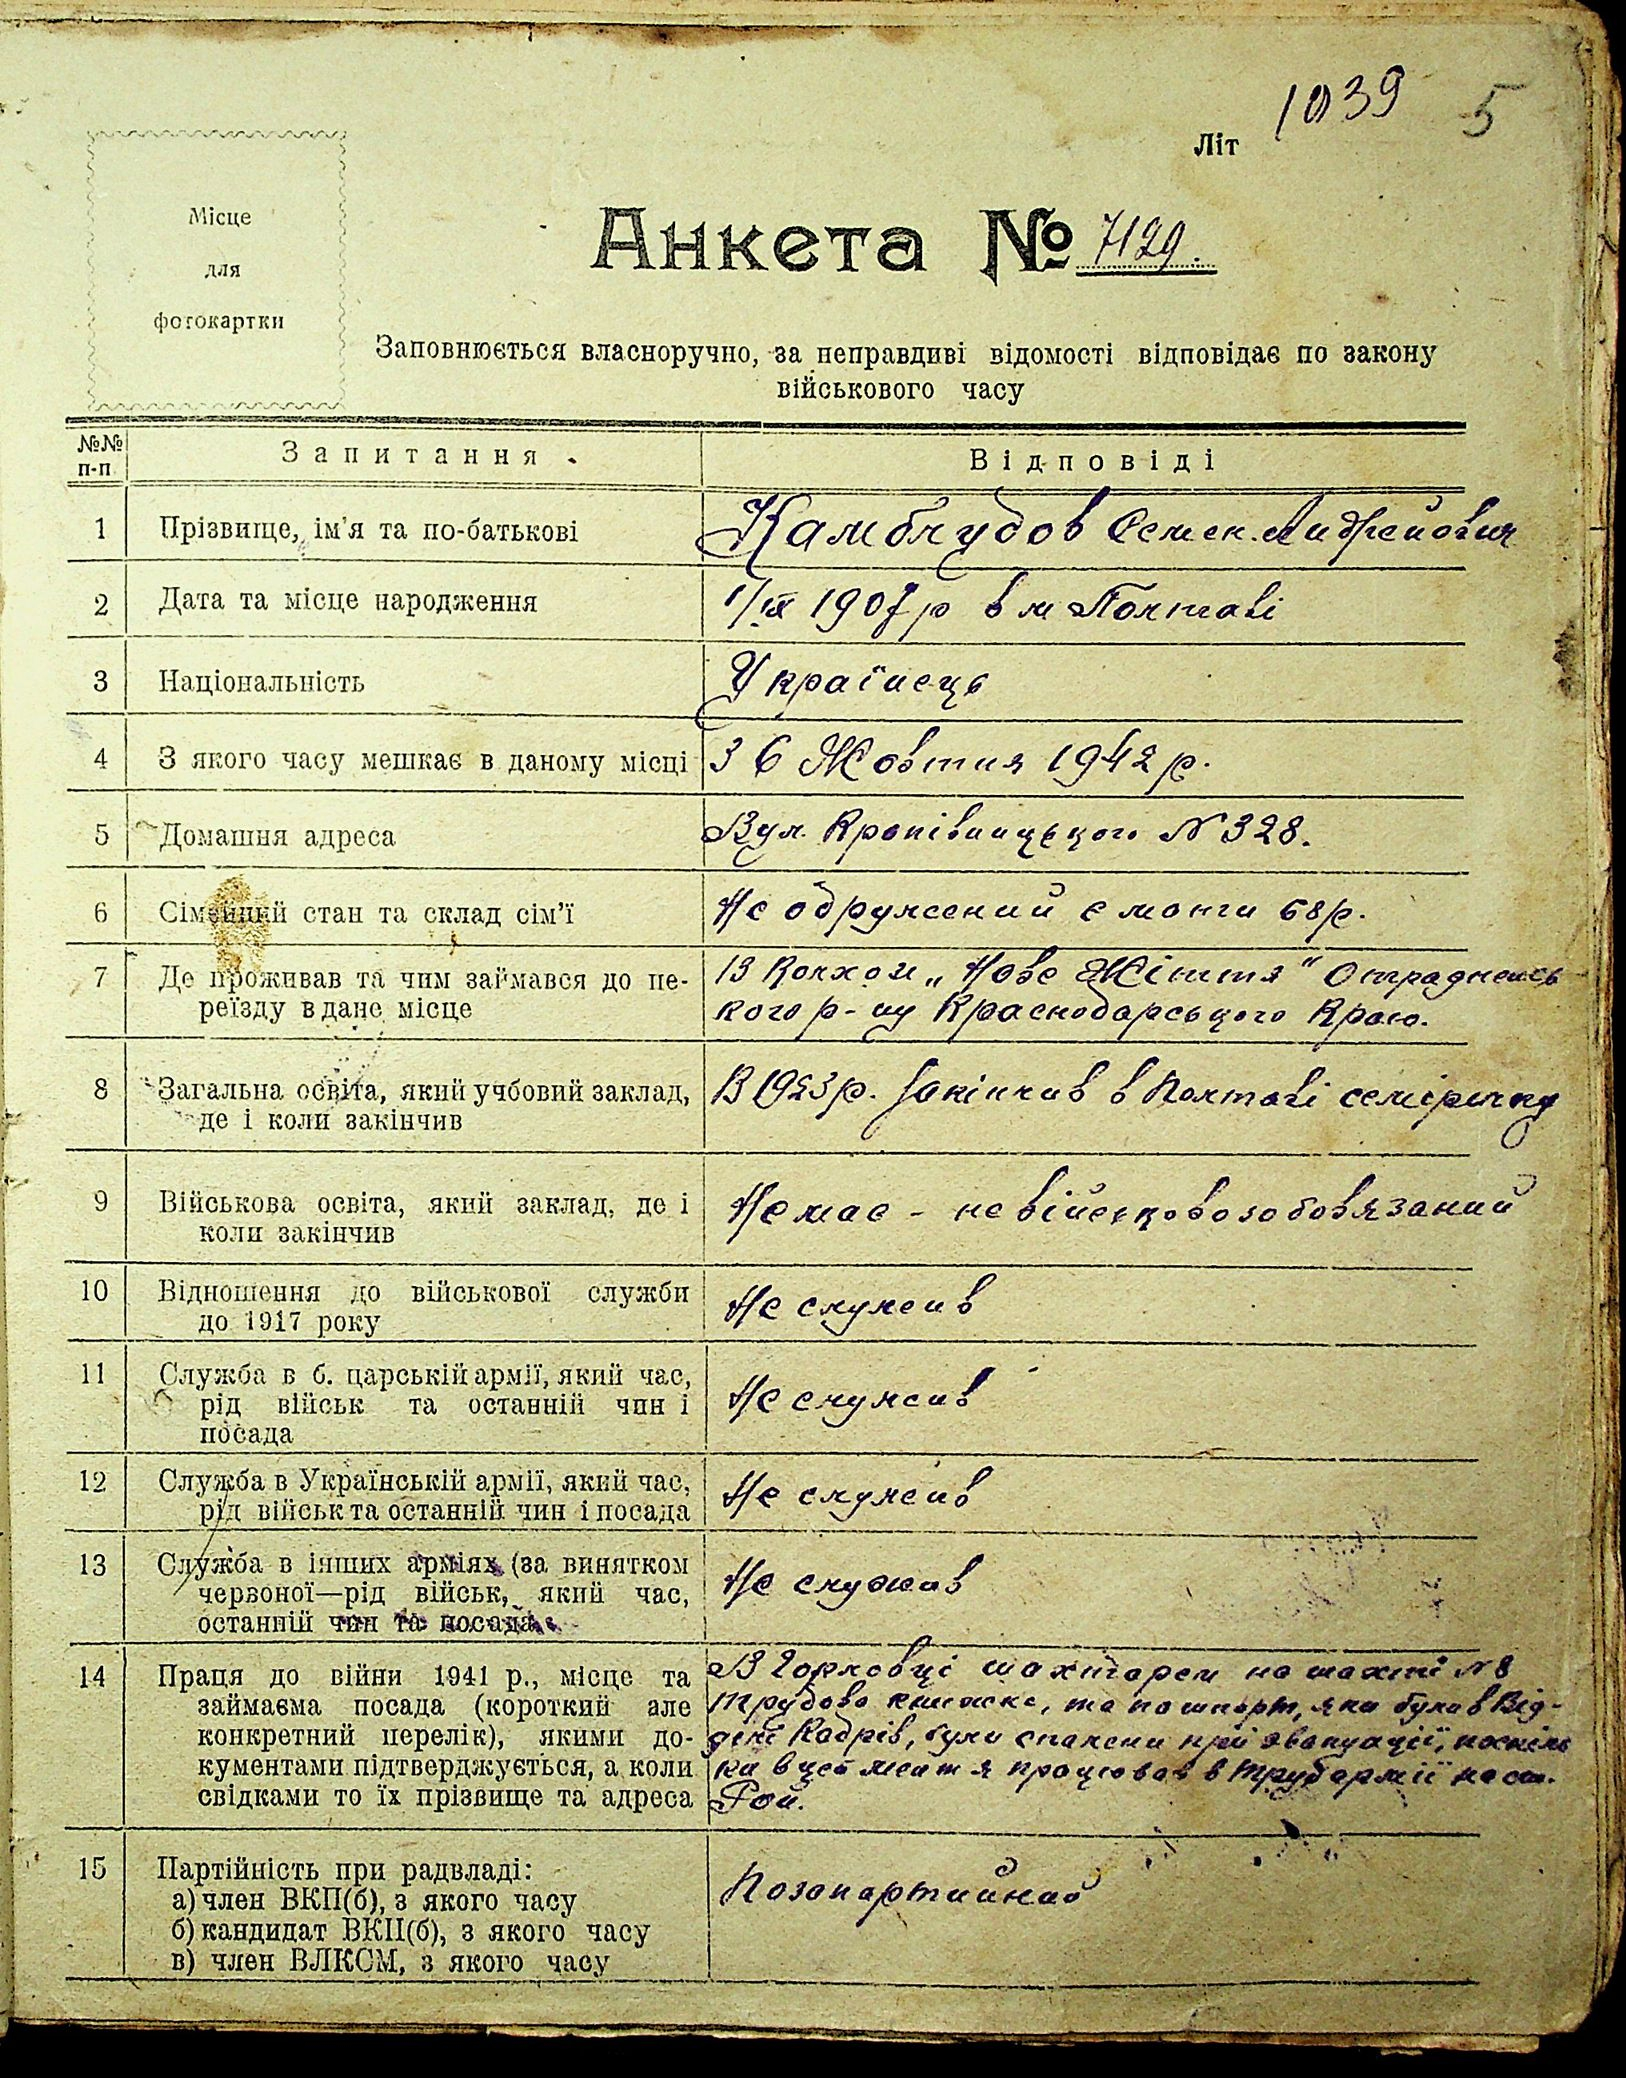 1039 5
Літ
Місце
для
фотокартки
Анкета № 7129.
Заповнюється власноручно, за неправдиві відомості відповідає по закону
військового часу
№№
п-п
Запитання.
Відповіді
1 Прізвище, ім'я та по-батькові
Камблудов Семен Андрейович
2 Дата та місце народження
1/IX 1907 р в м Полтаві
3 Національність
Українець
4 З якого часу мешкає в даному місці
З 6 Жовтня 1942 р.
5 Домашня адреса
Вул. Кропівницького N 328.
6 Сімейний стан та склад сім'ї
Не одружений є мати 68 р.
7 Де проживав та чим займався до пе-
реїзду в дане місце
В Колхозі „Нове Жіття" Отраднен
кого р-ну Краснодарського Краю.
8 Загальна освіта, який учбовий заклад,
де і коли закінчив
В 1923 р. Закінчив в Полтаві семірічку
9 Військова освіта, який заклад, де і
коли закінчив
Немає - не військовозобовязаний
10 Відношення до військової служби
до 1917 року
Не служив
11 Служба в б. царській армії, який час,
рід військ та останній чин і
посада
Не служив
12 Служба в Українській армії, який час,
рід військ та останній чин і посада
Не служив
13 Служба в інших арміях (за винятком
червоної—рід військ, який час,
останній чин та посада
Не служив
14 Праця до війни 1941 р., місце та
займаєма посада (короткий але
конкретний перелік), якими до-
кументами підтверджується, а коли
свідками то їх прізвище та адреса
В Горловці шахтарем на шахті N 8
трудова книжка, та пашпорт, яки були в Від-
ділі Кадрів, були спалени при эвакуації, поскіль
ки в цей час я працював в Трудармії на ст.
Рой.
15 Партійність при радвладі:
а) член ВКП(б), з якого часу
б) кандидат ВКП(б), з якого часу
в) член ВЛКСМ, з якого часу
Позапартийний